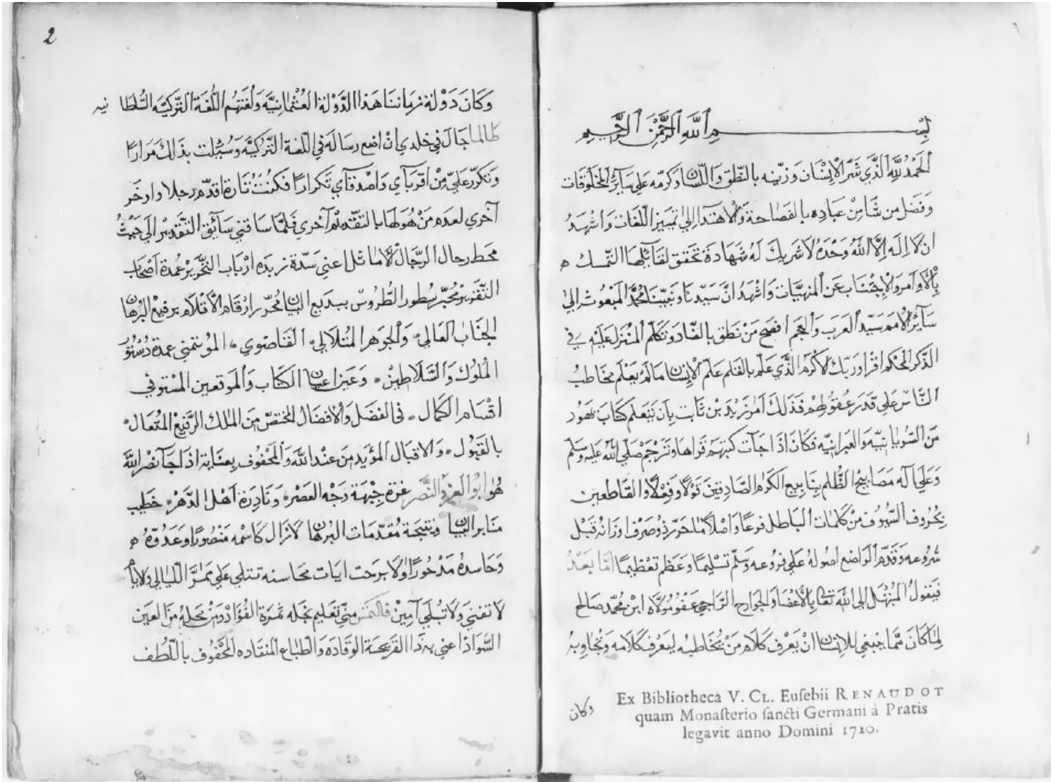 بسم الله الرحمن الرحيم
الحمد لله الذي شرف الإنسان وزينه بالنطق واللسان وكرمه على سائر المخلوقات
وفضل من شا من عباده بالفصاحة والاهتدا إلى تمييز اللغات واشهد
ان لا اله إلا الله وحده لا شريك له شهادة تحقق لقائلها التمسك
بالأوامر والاجتناب عن المنهيات واشهد ان سيدنا ونبينا محمد المبعوث إلى
سائر الأمم سيد العرب والعجم افصح من نطق بالضاد وتكلم المنزل عليه في
الذكر المحكم اقرا وربك الأكرم الذي علم بالقلم علم الإنسان ما لم يعلم مخاطب
الناس على قدر عقولهم فذلك أمر زيد بن ثابت بان يتعلم كتاب يهود
من السريانية والعبرانية فكان اذا جآت كتبهم قراها وترجم صلى الله عليه وسلم
وعلى آله مصابيح الظلم ينابيع الكرم الصادقين قولا وفعلا والقاطعين
بحروف السيوف من كلمات الباطل فرعا واصلا ما تحو وزانه قبل
شروعه وقدم الواضع اصوله على فروعه وسلم تسليما وعظم تعظيما امّا بعد
فيقول المبتهل إلى الله تعالى بالأعضا والجوارح الراجي عفو مولاه ابن محمد صالح
لما كان مما ينبغي للانسان ان يعرف كلام من يخاطبه ليعرف كلامه ويجاوبه
وكان
Ex Bibliotheca V. CL. Eusebii RENAUDOT
quam Monasterio sancti Germani à Pratis
legavit anno Domini 1720.
2
وكان دولة زماننا هذا الدولة العثمانية ولغتهم اللغة التركية السلطانيه
طالما جال في خلدي ان اضع رسالة في اللغة التركية وسئلت بذلك مرارا
وتكرر علي من اقربآي واصدقآي تكرارا فكنت تارة اقدم رجلا واوخر
آخري لعدم من هو لها بالتقدم آخري فلما ساقني سآئق التقدير الي حيث
محط رحال الرجال الاماثل اعني سدة زبدة ارباب التحرير عمدة اصحاب
التقرير محبر سطور الطروس ببديع البيان محرر ارقام الأقلام برفيع البرهان
الجناب العالي والجوهر المتلالي القاضوي المؤتمني عمدة دستور
الملوك والسلاطين وعين اعيان الكتاب والموقعين المستوفي
اقسام الكمال في الفضل والافضال المختص من الملك الرفيع المتعال
بالقبول والاقبال المؤيد من عند الله والمحفوف بعناية اذا جآ نصر الله
هو ابو العز والنصر غرة جبهة وجه العصر ونادرة اهل الدهر خطيب
منابر البيان ونتيجة مقدمات البرهان لا زال كاسمه منصورا وعدوه
وحاسده مدحورا ولا برحت ايات محاسنه تتلى على ممر الليالي والايام
لا تفنى ولا تبلى آمين مني تعليم نجله ثمرة الفؤاد ومن محله من العين
السواد اعني به ذا القريحة الوقاده والطباع المنقاده المحفوف باللطف